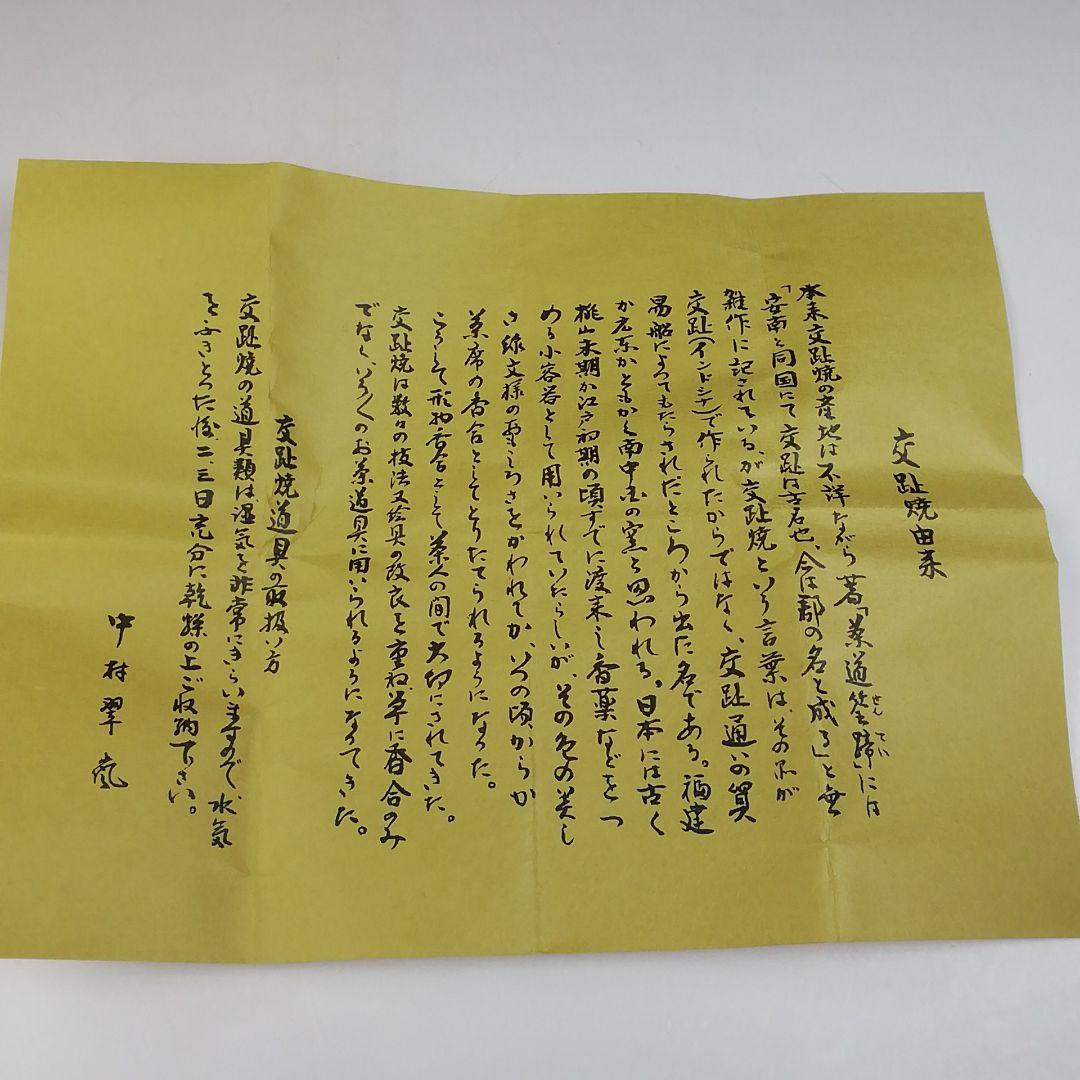 交趾焼由来
本来交趾焼の産地は不詳ながら著「茶道筌蹄」には
せんてい
「安南と同国にて交趾は古名也、今は郡の名と成る」と無
雑作に記されている、が交趾焼という言葉は、その品が
交趾(インドシナ)で作られたからではなく、交趾通いの貿
易船によってもたらされたところから出た名である。福建
か広東かともかく南中国の窯と思われる。日本には古く
桃山末期か江戸初期の頃すでに渡来し香薬などをつ
める小容器として用いられていたらしいが、その色の美し
さ緑文様の面しろさをかわれてか、いつの頃からか
茶席の香合としてとりたてられるようになった。
こうして形物香合として茶人の間で大切にされてきた。
交趾焼は数々の技法又絵具の改良を重ね、単に香合のみ
でなく、いろ〱のお茶道具に用いられるようになってきた。
交趾焼道具の取扱い方
交趾焼の道具類は、湿気を非常にきらいますので、水気
をふきとった後、二、三日充分に乾燥の上ご収納下さい。
中村翠嵐